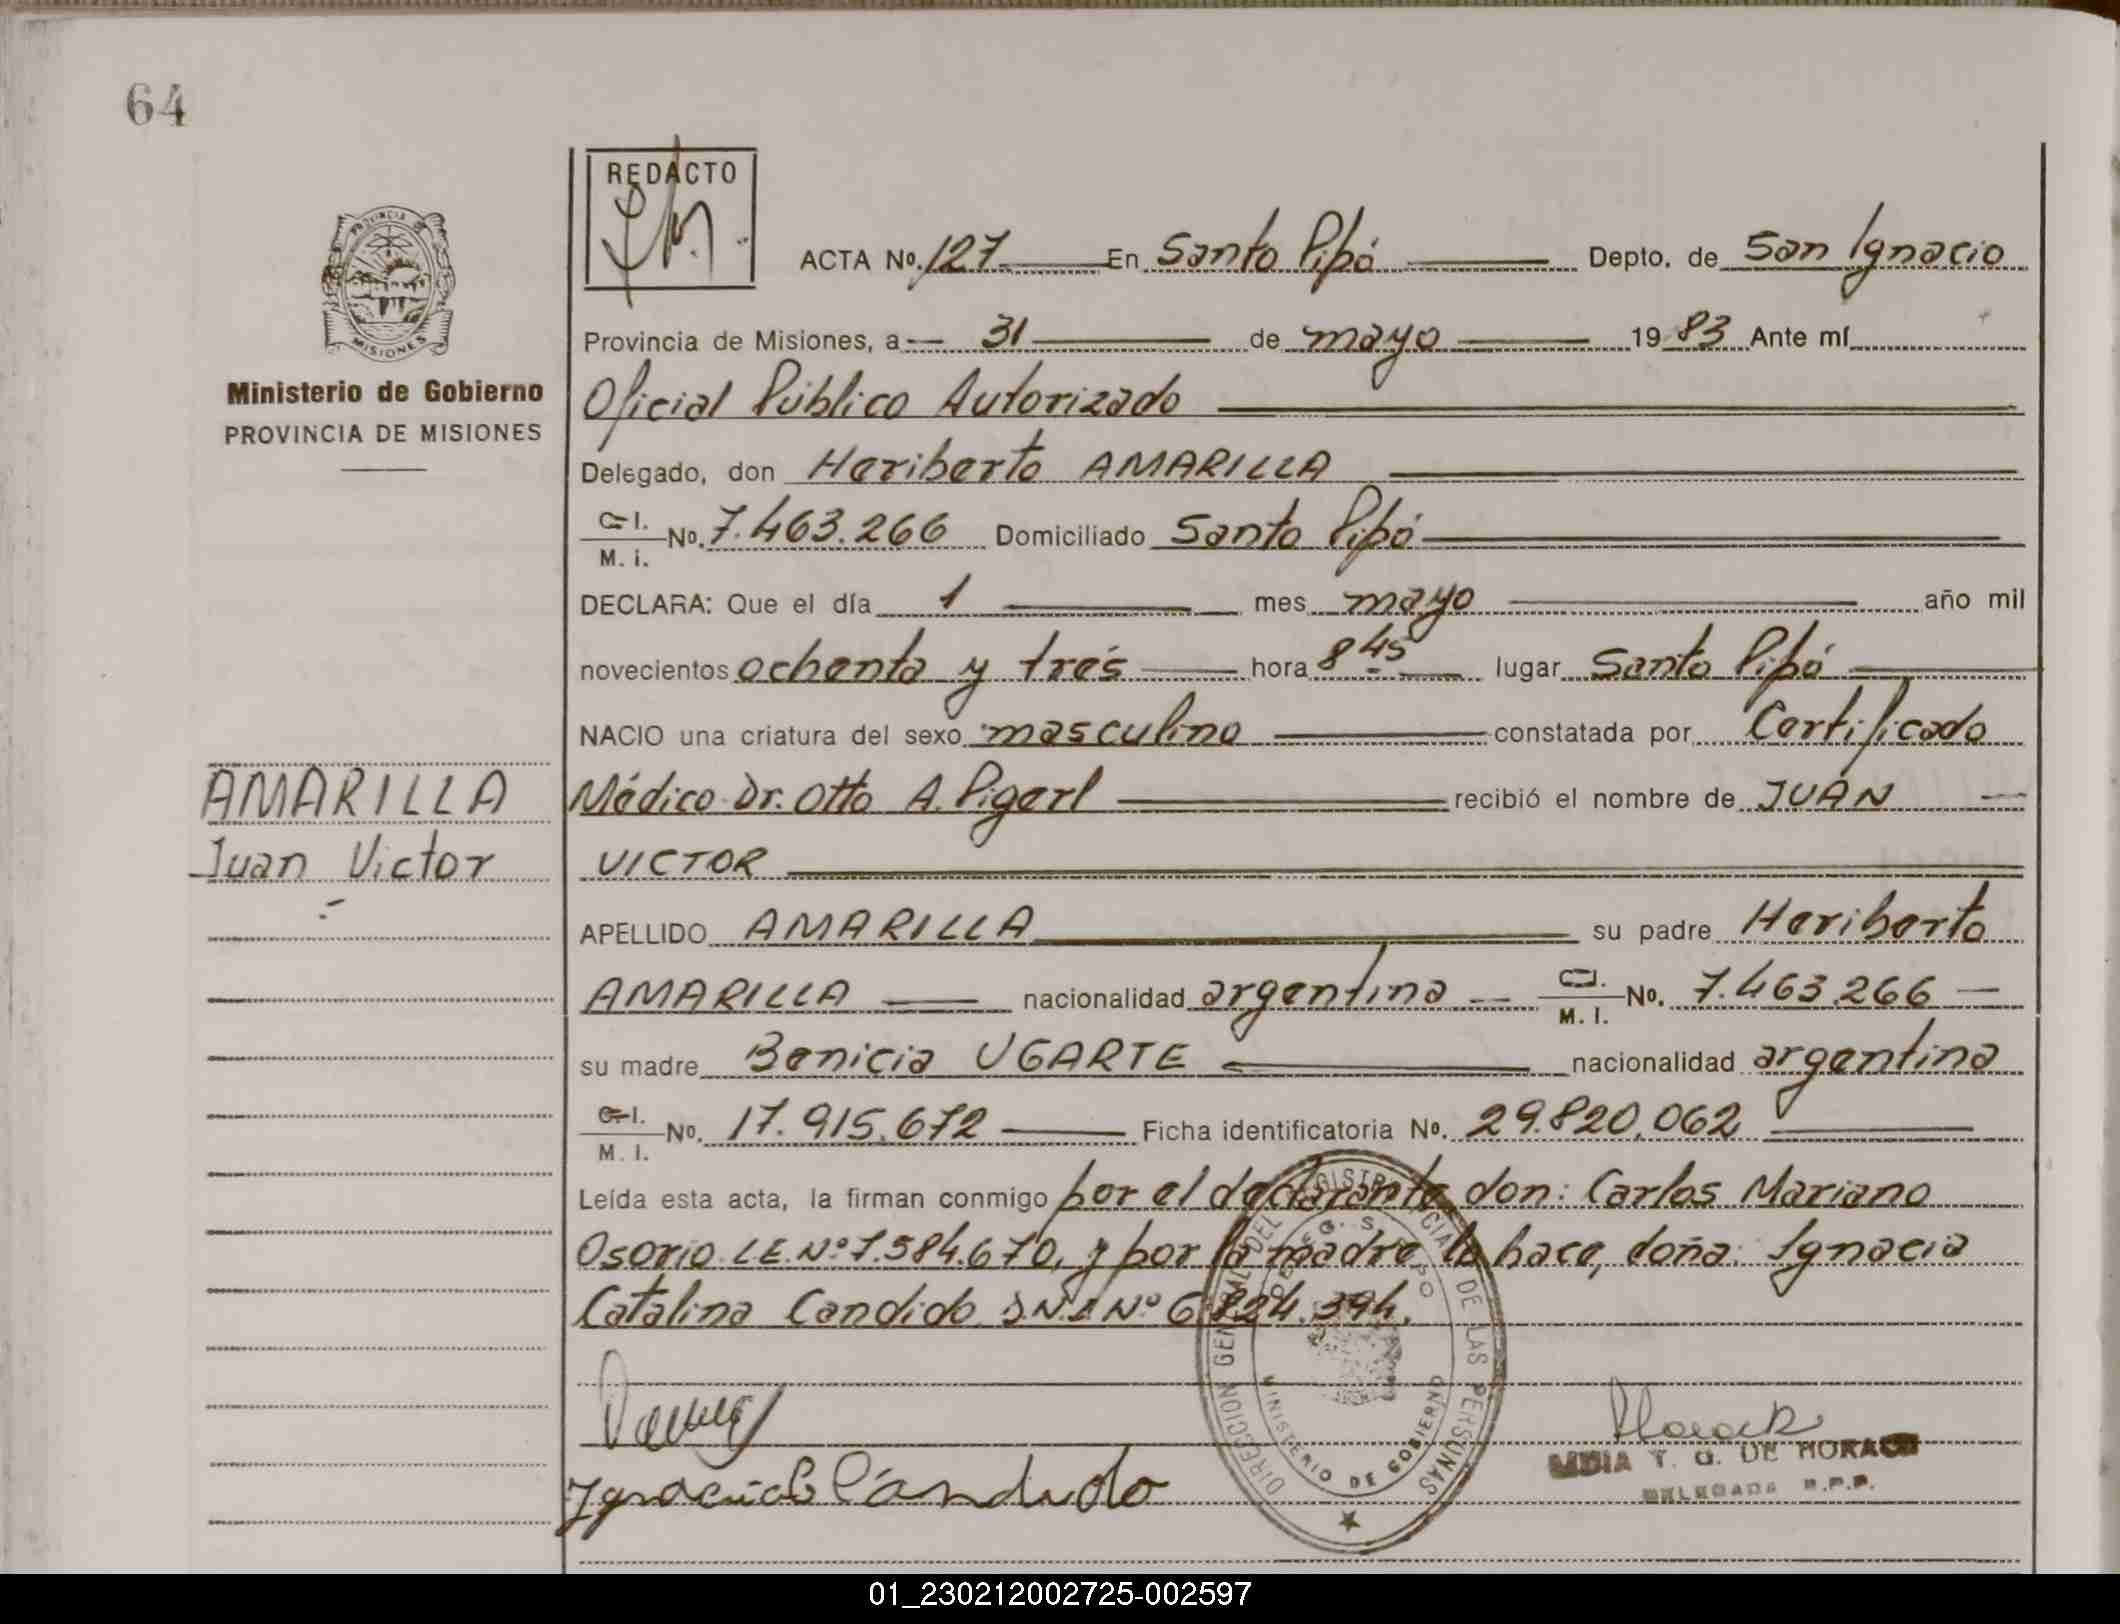 64
REDACTO
ACTA Nº. 127 En Santo Pipó Depto. de San Ignacio
PROVINCIA
MISIONES
Ministerio de Gobierno
PROVINCIA DE MISIONES
Provincia de Misiones, a 31 de mayo 1983 Ante mí
Oficial Público Autorizado
Delegado, don Heriberto AMARILLA
C. I.
M. I. Nº. 7.463.266 Domiciliado Santo Pipó
DECLARA: Que el día 1 mes mayo año mil
novecientos ochenta y tres hora 8 45 lugar Santo Pipó
NACIO una criatura del sexo masculino constatada por Certificado
Médico Dr. Otto A. Pigerl recibió el nombre de JUAN
VICTOR
AMARILLA
Juan Victor
APELLIDO AMARILLA su padre Heriberto
AMARILLA nacionalidad argentina C. I.
M. I. Nº. 7.463.266
su madre Benicia UGARTE nacionalidad argentina
C. I.
M. I. Nº. 17.915.672 Ficha identificatoria Nº. 29.820.062
Leída esta acta, la firman conmigo por el declarante don: Carlos Mariano
Osorio L.E. Nº 7.584.670, y por la madre lo hace, doña: Ignacia
Catalina Candido D.N.I Nº 6.824.394.
DIRECCION GENERAL DEL REGISTRO DE LAS PERSONAS
MINISTERIO DE GOBIERNO
T. G. DE HORACK
DELEGADA R.P.P.
Ignacia C Cándido
01_230212002725-002597